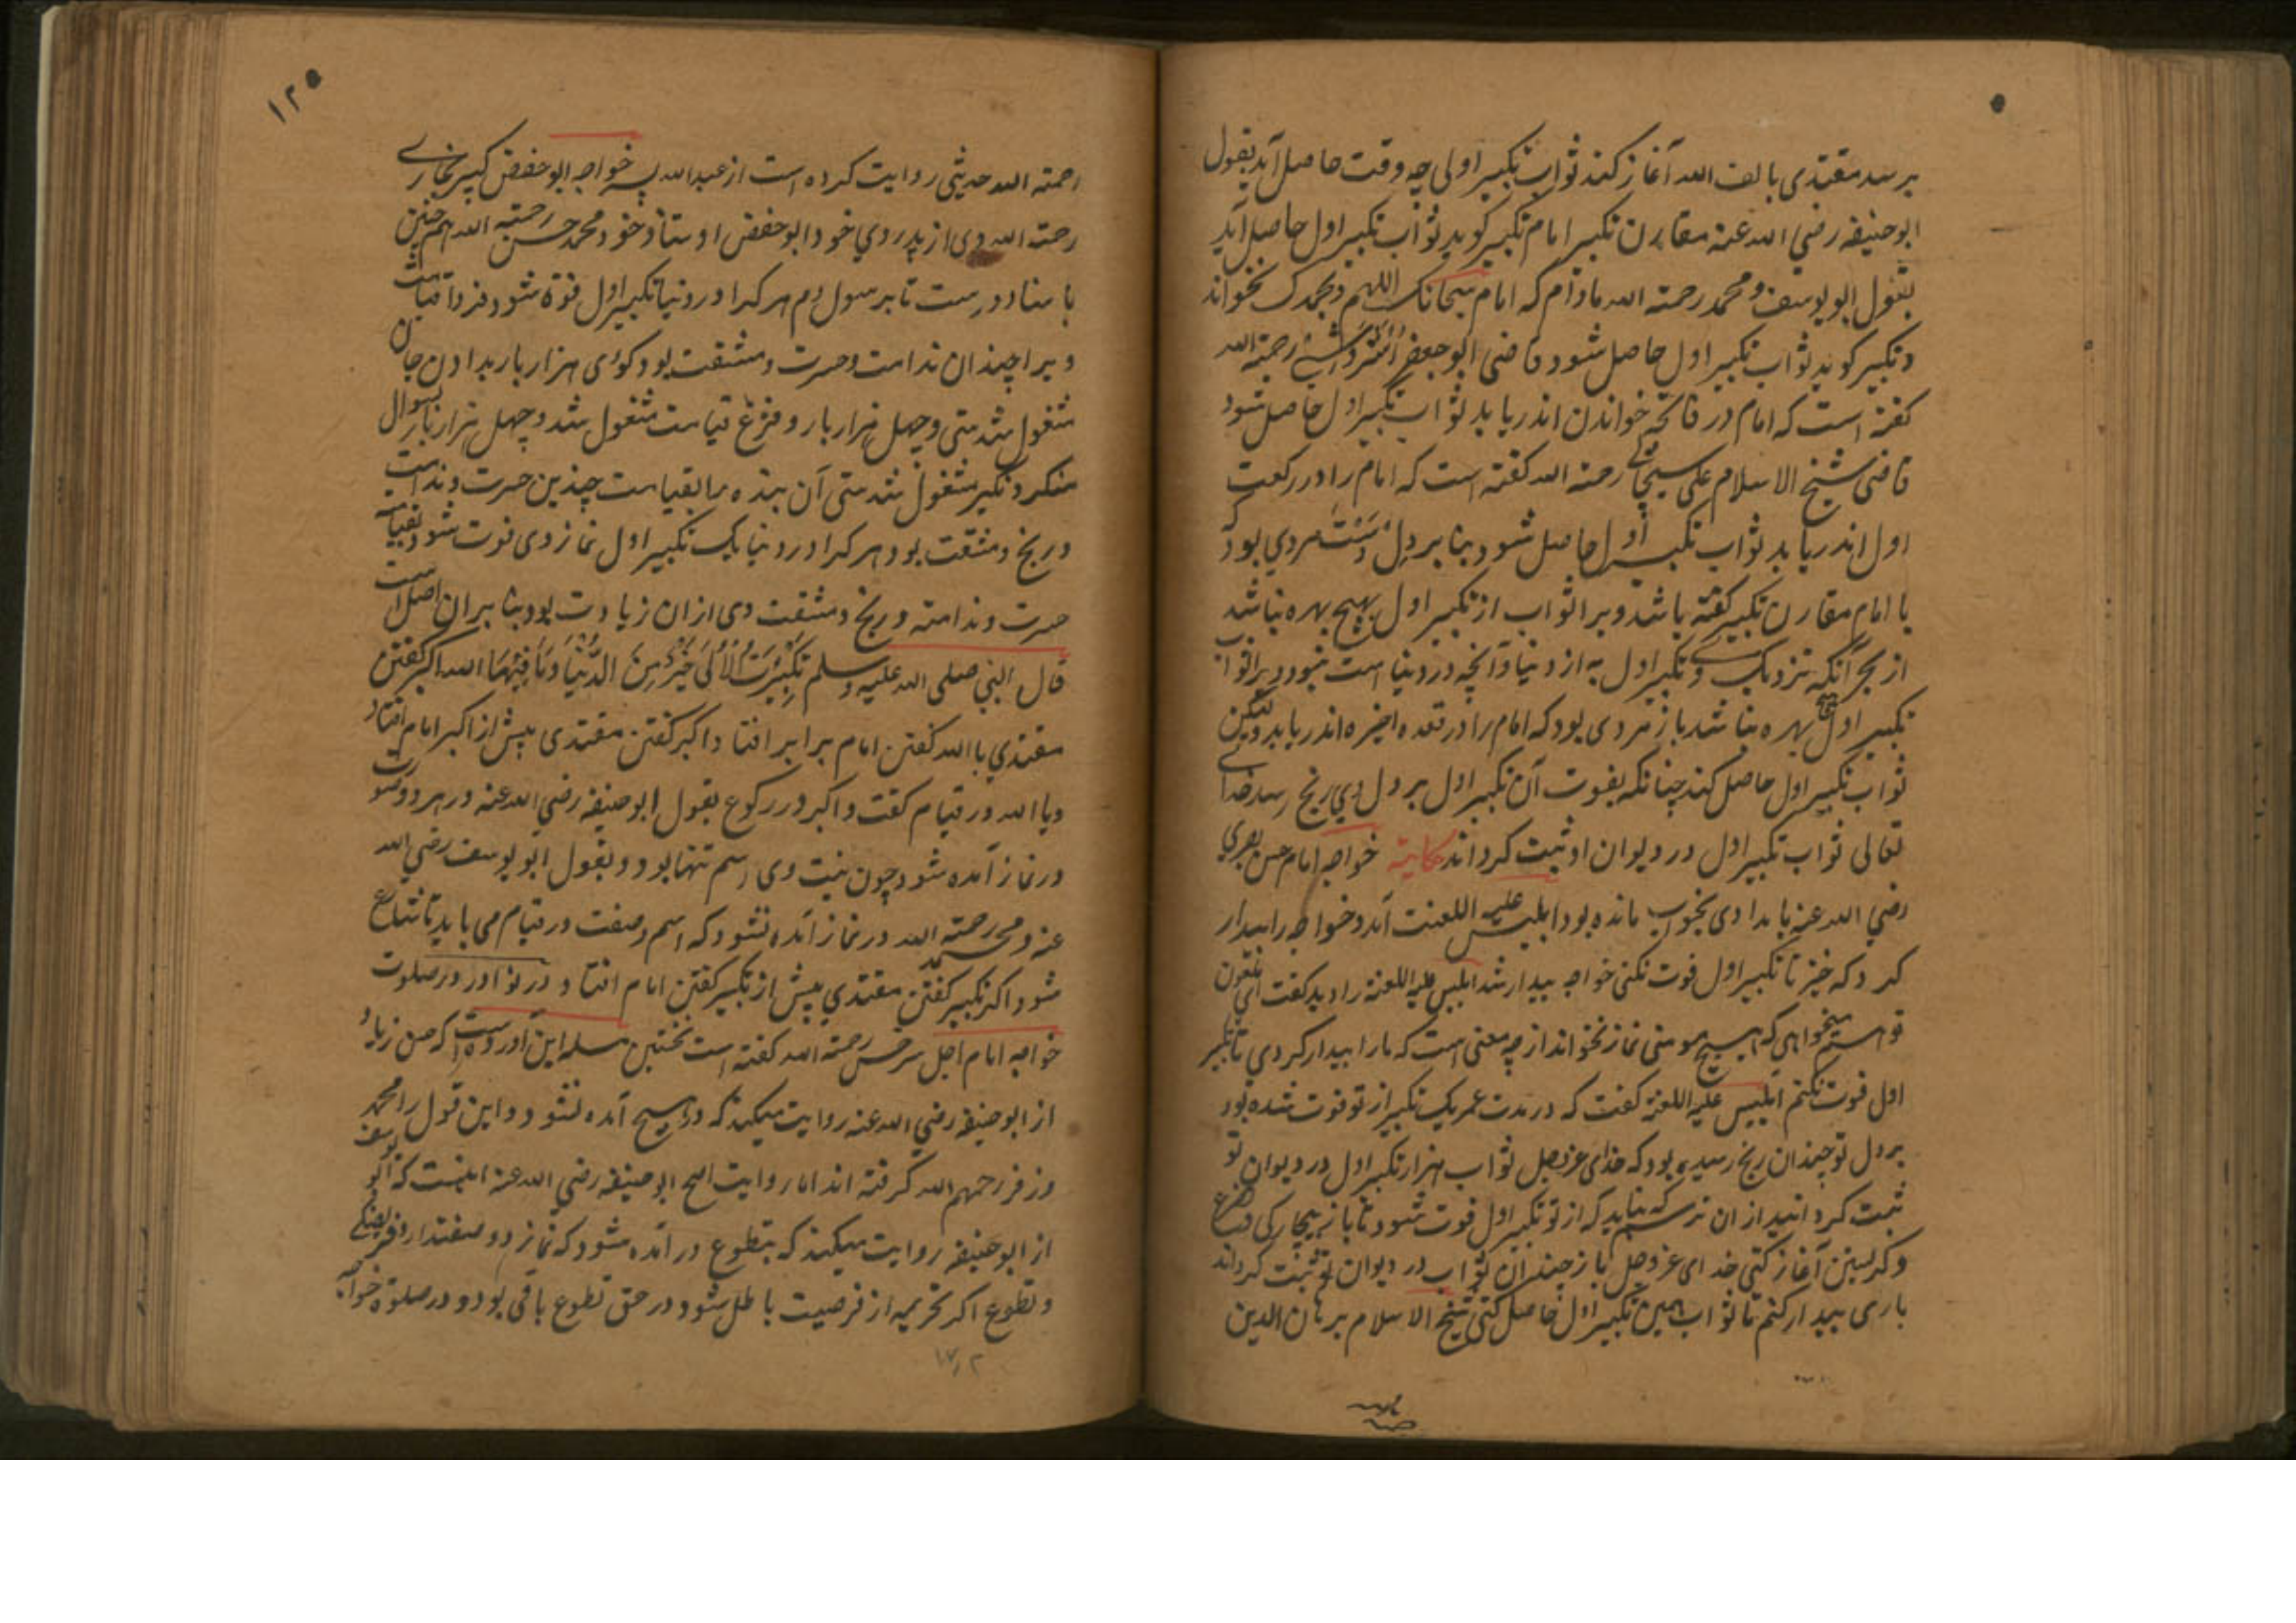 برسد مقتدی بالف الله آغاز کند ثواب تکبیر اولی چه وقت حاصل آید بقول
ابوحنیفه رضی الله عنه مقارن تکبیر امام تکبیر کوید ثواب تکبیر اول حاصل آید
بقول ابو یوسف و محمد رحمته الله مادام که امام سبحانک اللهم وبحمدک بخواند
و تکبیر کوید ثواب تکبیر اول حاصل شود قاضی ابو جعفر رحمته الله
کفته است که امام در فاتحه خواندن اندر یابد ثواب تکبیر اول حاصل شود
قاضی شیخ الاسلام علی رحمته الله کفته است که امام را در رکعت
اول اندر یابد ثواب تکبیر اول حاصل شود بنا بر دل مردی بود که
با امام مقارن تکبیر کفته باشد و برا ثواب از تکبیر اول هیچ بهره نباشد
از بحر آنکه نزدیک وی تکبیر اول به از دنیا و آنچه در دنیا است نبود ویرا ثواب
تکبیر اول هیچ بهره نباشد باز مردی بود که امام را در قعده اخیره اندر یابد ولیکن
ثواب تکبیر اول حاصل کند چنانکه بفوت آن تکبیر اول بر دل وی رنج رسد خدای
تعالی ثواب تکبیر اول در دیوان او ثبت کرداند حکایته خواجه امام حسن بصری
رضی الله عنه بامدادی بخواب مانده بود ابلیس علیه اللعنت آمد و خواجه را بیدار
کرد که خیز تا تکبیر اول فوت نکنی خواجه بیدار شد ابلیس علیه اللعنة را دید کفت ای ملعون
تو همیخواهی که هیچ مومنی نماز نخواند از چه معنی است که ما را بیدار کردی تا تکبیر
اول فوت نکنم ابلیس علیه اللعنة کفت که در مدت عمر یک تکبیر از تو فوت شده بود
بر دل تو چندان رنج رسیده بود که خدای عز وجل ثواب هزار تکبیر اول در دیوان تو
ثبت کردانید از ان ترسم که نباید که از تو تکبیر اول فوت شود تا باز بیچارکی و فزع
و کریستن آغاز کنی خدای عز وجل باز چندان ثواب در دیوان تو ثبت کرداند
باری بیدار کنم تا ثواب همین تکبیر اول حاصل کنی شیخ الاسلام برهان الدین
۱۲۵
رحمته الله حدیثی روایت کرده است از عبدالله پسر خواجه ابو حفص کبیر بخاری
رحمته الله وی از پدر وی خود ابو حفص اوستاد خود محمد حسن رحمته الله هم چنین
باسناد درست تا برسول دم هر کرا در دنیا تکبیر اول فوة شود فردا قیامت
ویرا چندان ندامت و حسرت و مشقت بود کوئی هزار بار بدادن جان
مشغول شدستی و چهل هزار بار و فزع قیامت مشغول شد و چهل هزار بار بسوال
منکر و نکیر مشغول شدستی آن بنده را بقیامت چندین حسرت و ندامت
و رنج و مشقت بود هر کرا در دنیا یک تکبیر اول نماز وی فوت شود بقیامت
حسرت و ندامته و رنج و مشقت وی از ان زیادت بود بنا بر ان اصل است
قال النبی صلی الله علیه وسلم تکبیرت الاولی خیر من الدنیا وما فیها الله اکبر کفتن
مقتدی با الله کفتن امام برابر افتاد و اکبر کفتن مقتدی پیش از اکبر امام افتاد
ویا الله در قیام کفت و اکبر در رکوع بقول ابو حنیفه رضی الله عنه در هر دو صورت
در نماز آمده شود چون نیت وی اسم تنها بود و بقول ابو یوسف رضی الله
عنه و محمد رحمته الله در نماز آمده نشود که اسم و صفت در قیام می باید تا شارع
شود اکر تکبیر کفتن مقتدی پیش از تکبیر کفتن امام افتاد در نوادر در صلوت
خواجه امام اجل سرخسی رحمته الله کفته است نخستین مسله این آورده است که حسن زیاد
از ابو حنیفه رضی الله عنه روایت میکند که در هیچ آمده نشود و این قول را محمد
و زفر رحمهم الله کرفته اند اما روایت اصح ابو حنیفه رضی الله عنه اینست که ابو یوسف
از ابو حنیفه روایت میکند که بتطوع در آمده شود که نماز دو صفت دارد فریضکی
و تطوع اکر تحریمه از فرضیت باطل شود در حق تطوع باقی بود و در صلوة خواجه